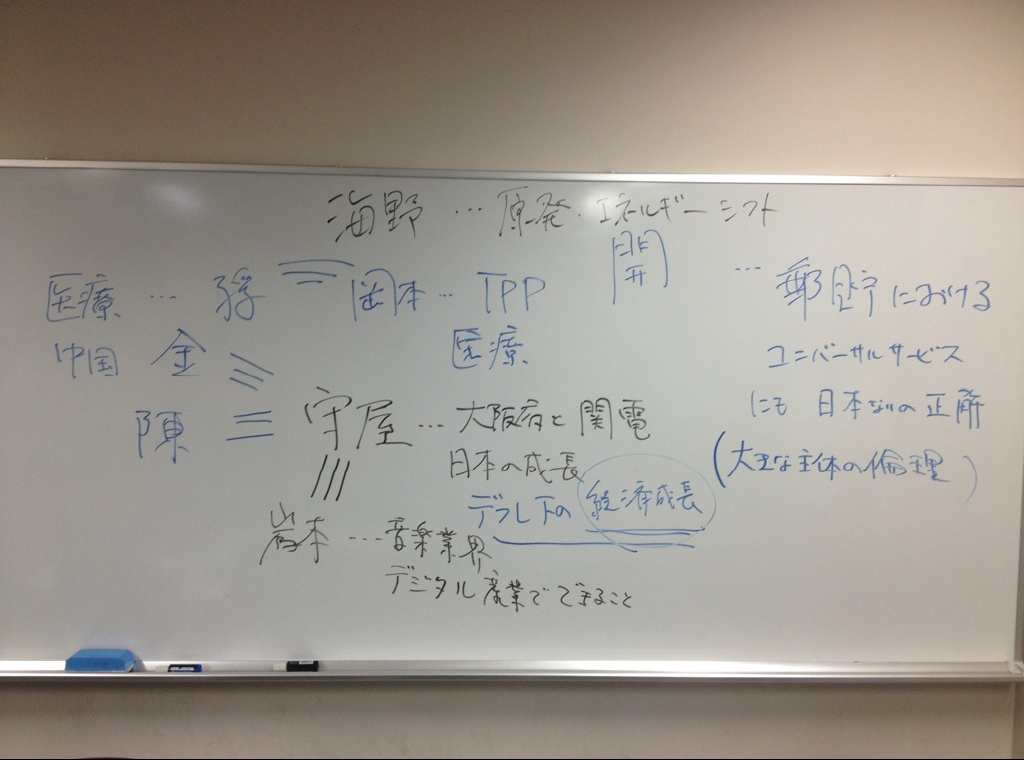 海野 … 原発・エネルギーシフト
医療 … 孫 = 岡本 … TPP 開 … 郵貯における
中国 金 医療 ユニバーサルサービス
にも 日本ならの 正解
陳 三 守屋 … 大阪府と関電
日本の成長 (大きな主体の倫理)
デフレ下の 経済成長
岩本 … 音楽業界
デジタル産業でできること